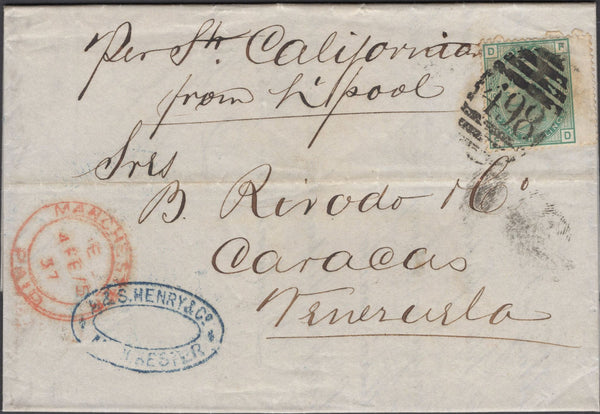 Per Str. Californian
from L'pool
Sres
B. Rivodo & Co
Caracas
Venezuela
498
D
D
MANCHESTER
4 FE 75
37
PAID
A & S. HENRY & Co
MANCHESTER